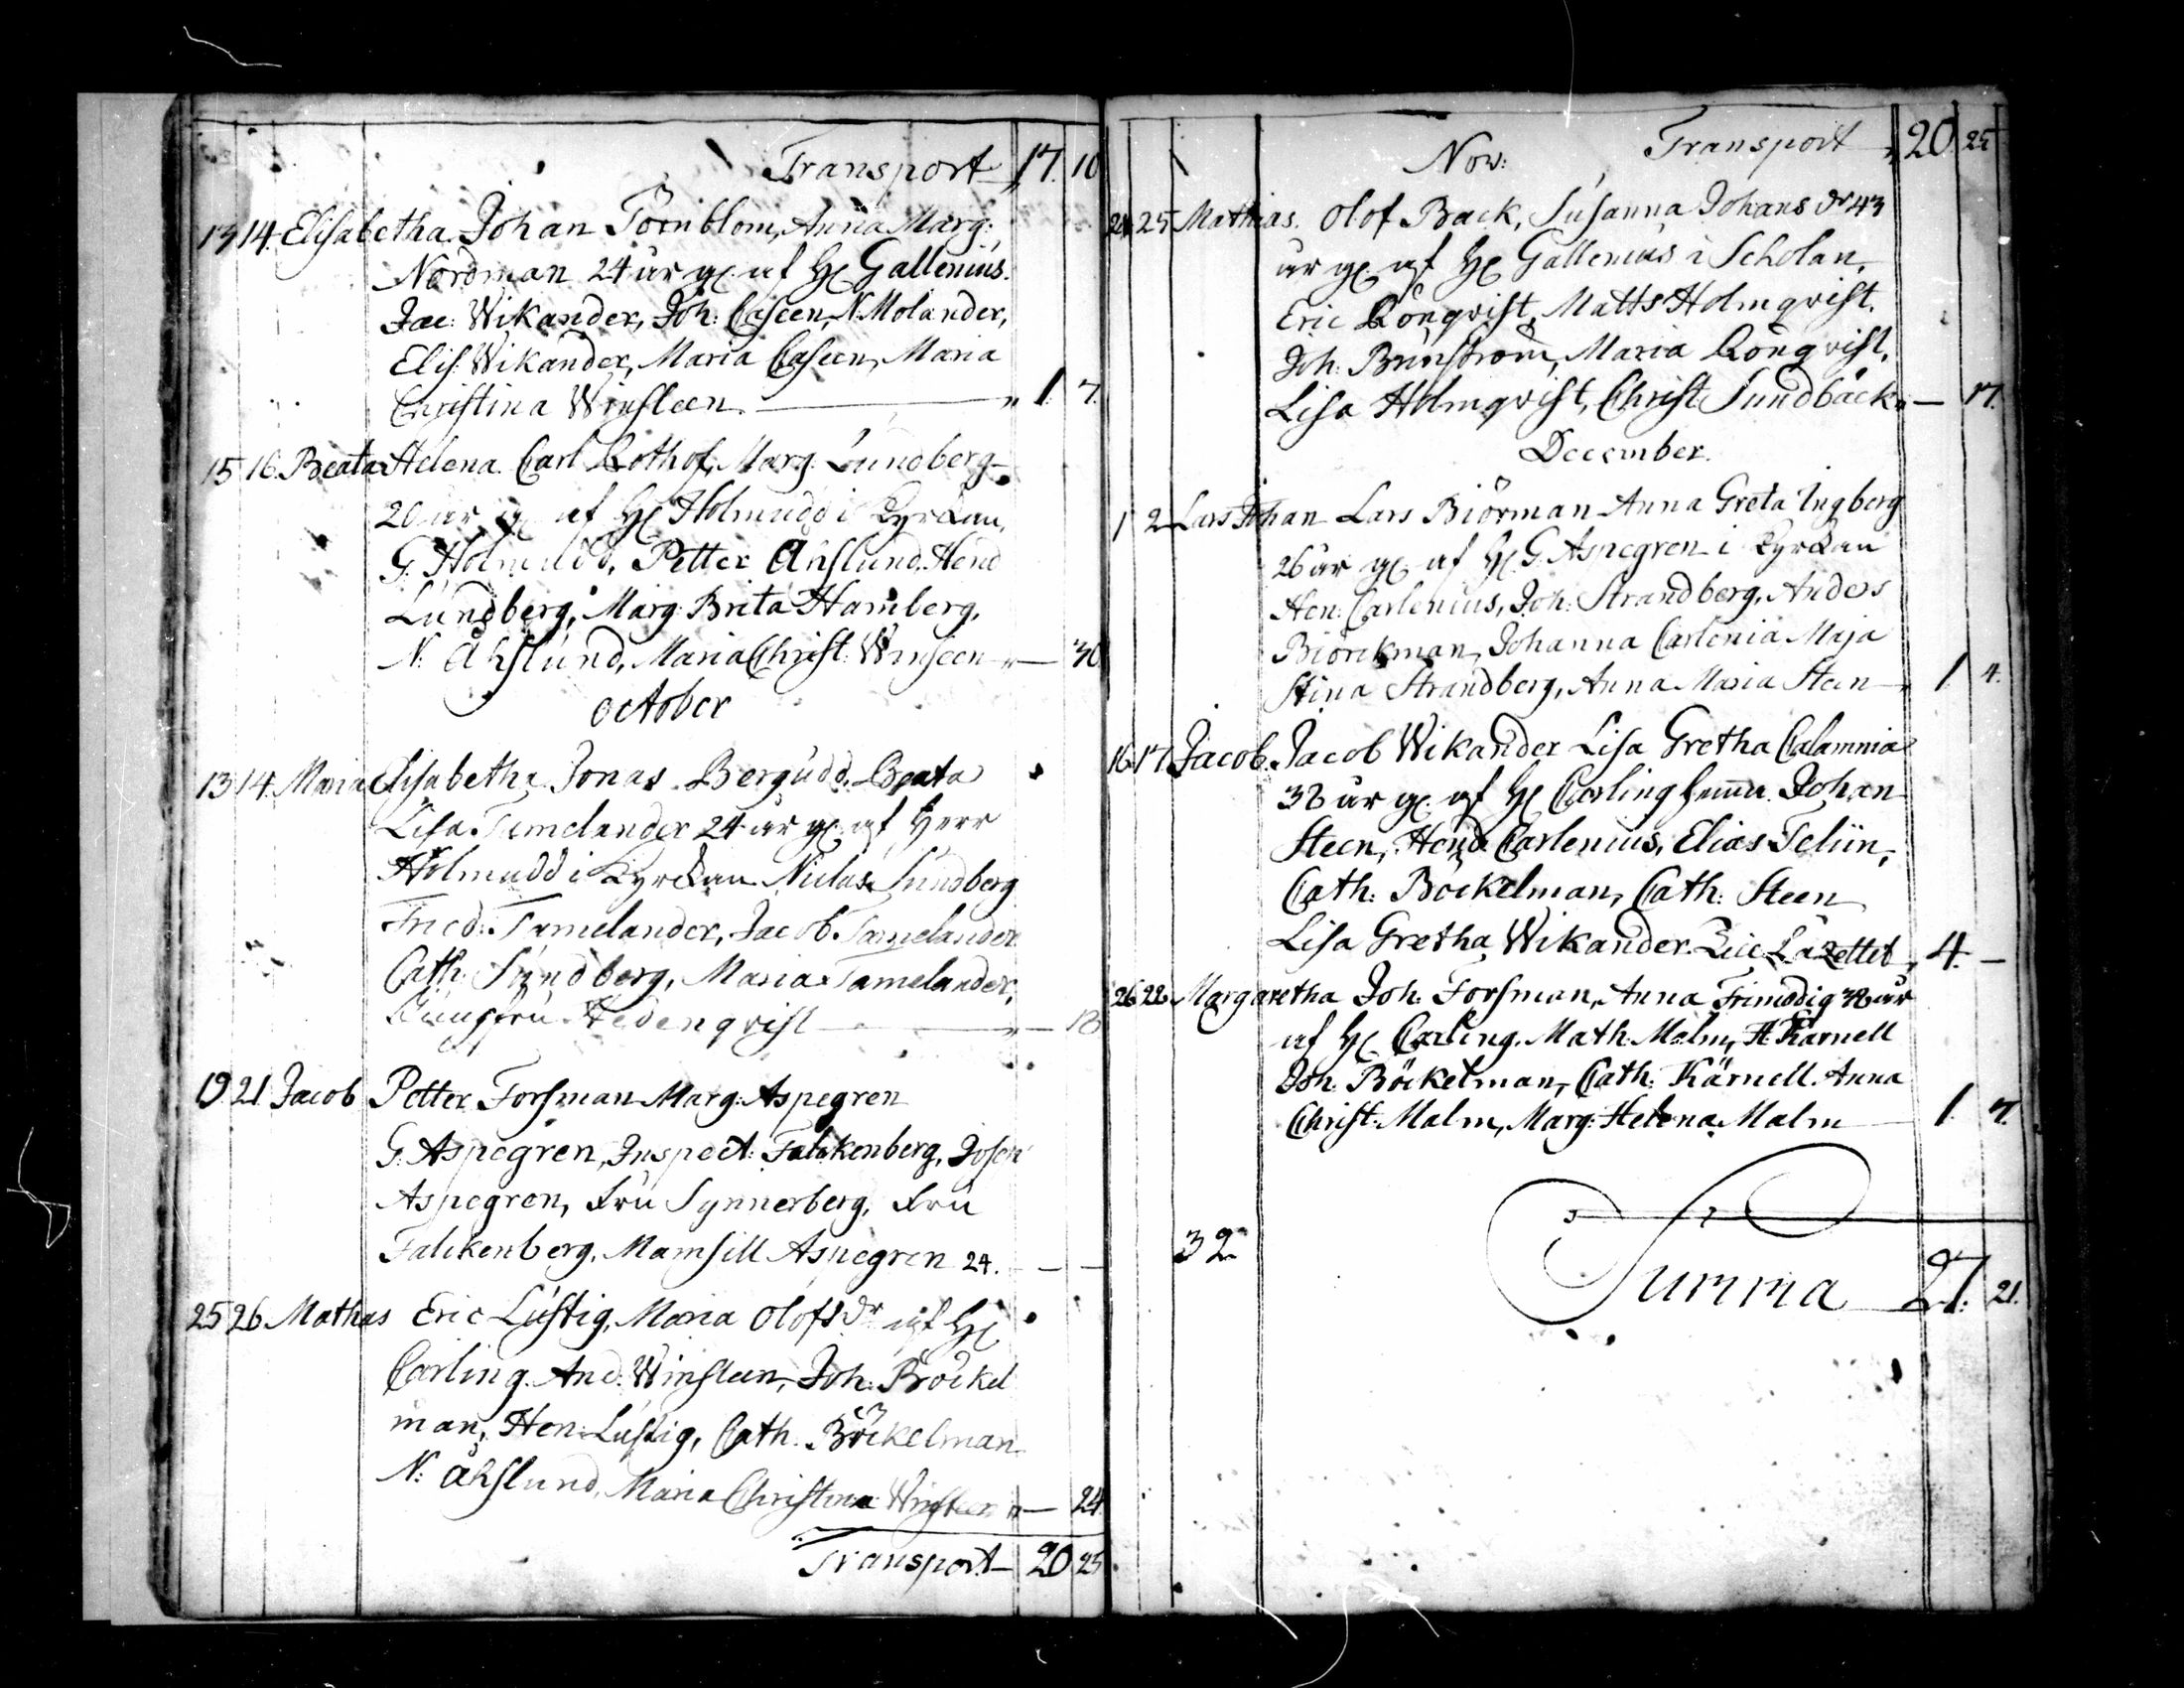 Transport 17. 10
13 14. Elisabetha. Johan Törnblom, Anna Marg:
Nordman 24 år g. af H Gallenius.
Jac: Wikander, Joh: Caseen, N. Molander,
Elis: Wikander, Maria Caseen, Maria
Christina Winsteen. — " 1. 7.
15 16. Beata Helena. Carl Rothof, Marg. Lundberg
20 år g. af H Holmudd i Kyrkan,
G. Holmudd, Petter Åhslund, Hend
Lundberg, Marg: Brita Hamberg,
N: Åhslund, Maria Christ: Winseen " — 30
October
13 14. Maria Elisabetha Jonas Bergudd, Beata
Lisa Tamelander 24 år g. af Herr
Holmudd i Kyrkan Niclas Sundberg
Fried: Tamelander, Jacob Tamelander
Cath: Sundberg, Maria Tamelander,
Jungfru Hedenqvist — " — 18
19 21. Jacob Petter Forsman Marg: Aspegren
G: Aspegren, Inspect: Falckenberg, Josen
Aspegren, Fru Synnerberg, Fru
Falckenberg, Mamsell Aspegren 24. — —
25 26 Mathias Eric Lustig, Maria Olofs dr af H
Carling. And. Winsteen, Joh: Böckel
man, Hen: Lustig, Cath. Böckelman
N: Åhslund, Maria Christina Winsteen " — 24.
Transport 20 25
Transport " 20. 25
Nov:
24 25 Mathias. Olof Back, Susanna Johans dr 43
år g. af H Gallenius i Scholan,
Eric Lönqvist, Matts Holmqvist.
Joh: Brunström, Maria Lönqvist,
Lisa Holmqvist, Christ: Sundbäck " — 17.
December.
1 2 Lars Johan Lars Biörman Anna Greta Ingberg
26 år g. af H G. Aspegren i Kyrkan
Hen: Carlenius, Joh: Strandberg, Anders
Biörckman, Johanna Carlenia Maja
Stina Strandberg, Anna Maria Steen " 1. 4.
16 17. Jacob. Jacob Wikander Lisa Gretha Calamnia
38 år g. af H Carling hemma. Johan
Steen, Hend: Carlenius, Elias Telün,
Cath: Böckelman, Cath: Steen
Lisa Gretha Wikander. " 4. —
26 28 Margaretha Joh: Forsman, Anna Frimodig 38 år
af H Carling. Math: Malm, H: Kärnell
Joh: Böckelman, Cath: Kärnell. Anna
Christ: Malm, Marg: Helena Malm 1. 7.
32
Summa 27. 21.